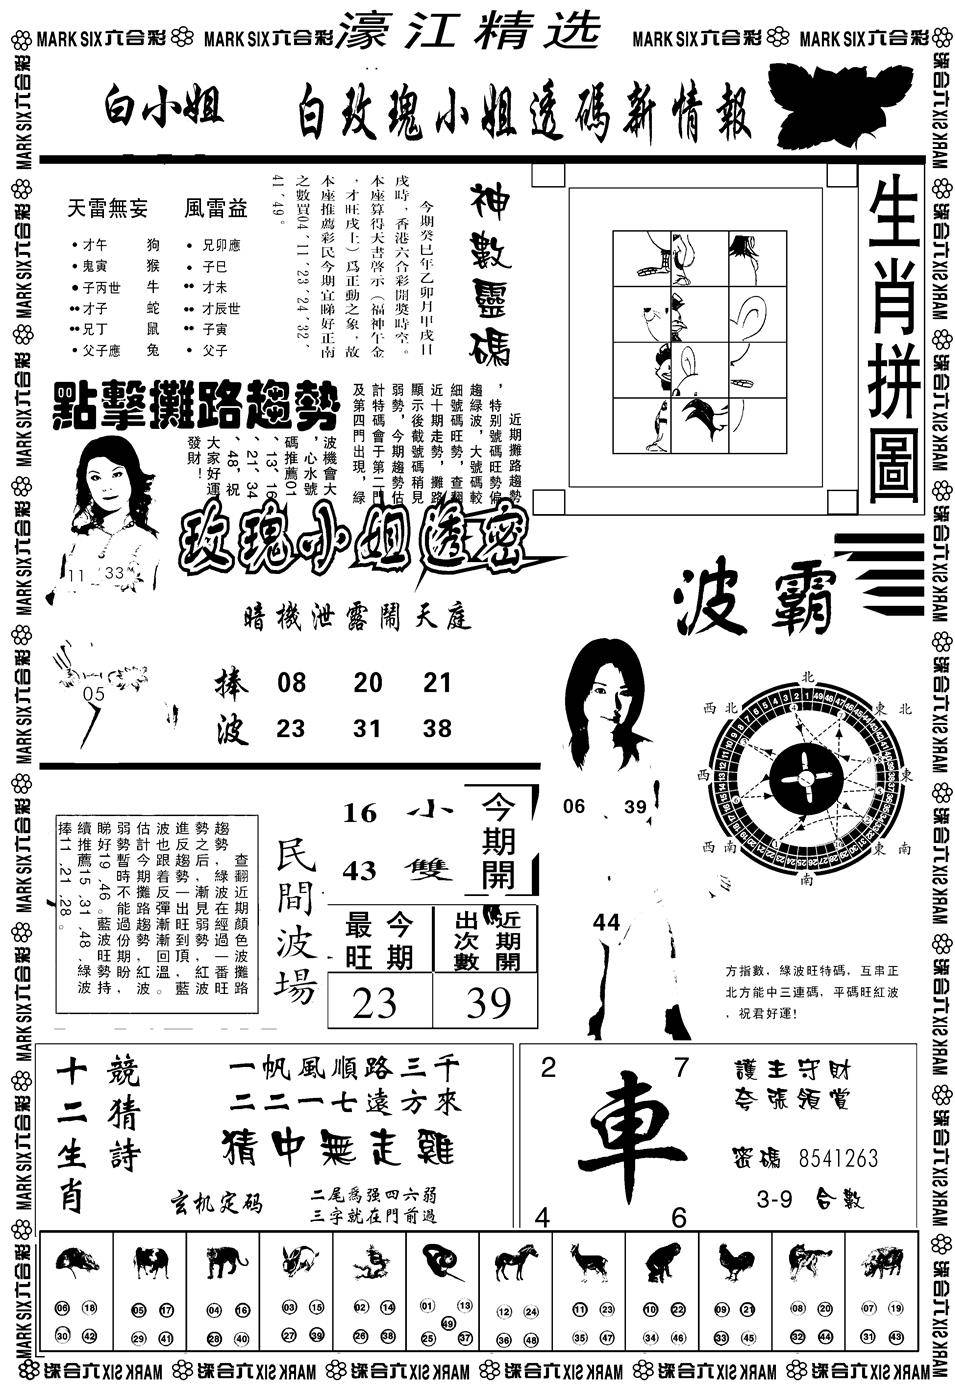 濠江精选
MARK SIX六合彩
MARK SIX六合彩
MARK SIX六合彩
MARK SIX六合彩
白小姐
白玫瑰小姐透碼新情報
天雷無妄
風雷益
才午 狗
鬼寅 猴
子丙世 牛
才子 蛇
兄丁 鼠
父子應 兔
兄卯應
子巳
才未
才辰世
子寅
父子
神數靈碼
今期癸巳年乙卯月甲戌日
戌時，香港六合彩開獎時空。
本座算得天書啓示（福神午金
，才旺戌上）爲正動之象，故
本座推薦彩民今期宜睇好正南
之數買04、11、23、24、32、
41、49。
生肖拼圖
點擊攤路趨勢
近期攤路趨勢
，特别號碼旺勢偏
趨緑波，大號碼較
細號碼旺勢，查翻
近十期走勢，攤路
顯示後截號碼稍見
弱勢，今期趨勢估
計特碼會于第二門
及第四門出現，緑
波機會大
，心水號
碼推薦01
、13、16
、21、34
、48，祝
大家好運
發財！
11 33
05
玫瑰小姐透密
暗機泄露鬧天庭
捧 08 20 21
波 23 31 38
波霸
北
東北
東
東南
南
西南
西
西北
06 39
44
方指數，緑波旺特碼，互串正
北方能中三連碼，平碼旺紅波
，祝君好運！
查翻近期顔色波攤路
趨勢，緑波在經過一番旺
勢之后，漸見弱勢，紅波
進反趨勢一出旺到頂，藍
波也跟着反彈漸漸回溫。
估計今期攤路趨勢紅波
弱勢暫時不能過份期盼，
睇好19、46。藍波旺勢持
續推薦15、31、48、緑波
捧11、21、28。
民間波場
16 小
43 雙
今期開
今期最旺
近期開出次數
23
39
十二生肖
競猜詩
一帆風順路三千
二二一七遠方來
猜中無走雞
玄机定码
二尾爲强四六弱
三字就在門前過
2 7
車
4 6
護主守財
夸張領賞
密碼 8541263
3-9 合數
06 18 30 42
05 17 29 41
04 16 28 40
03 15 27 39
02 14 26 38
01 13 49 25 37
12 24 36 48
11 23 35 47
10 22 34 46
09 21 33 45
08 20 32 44
07 19 31 43